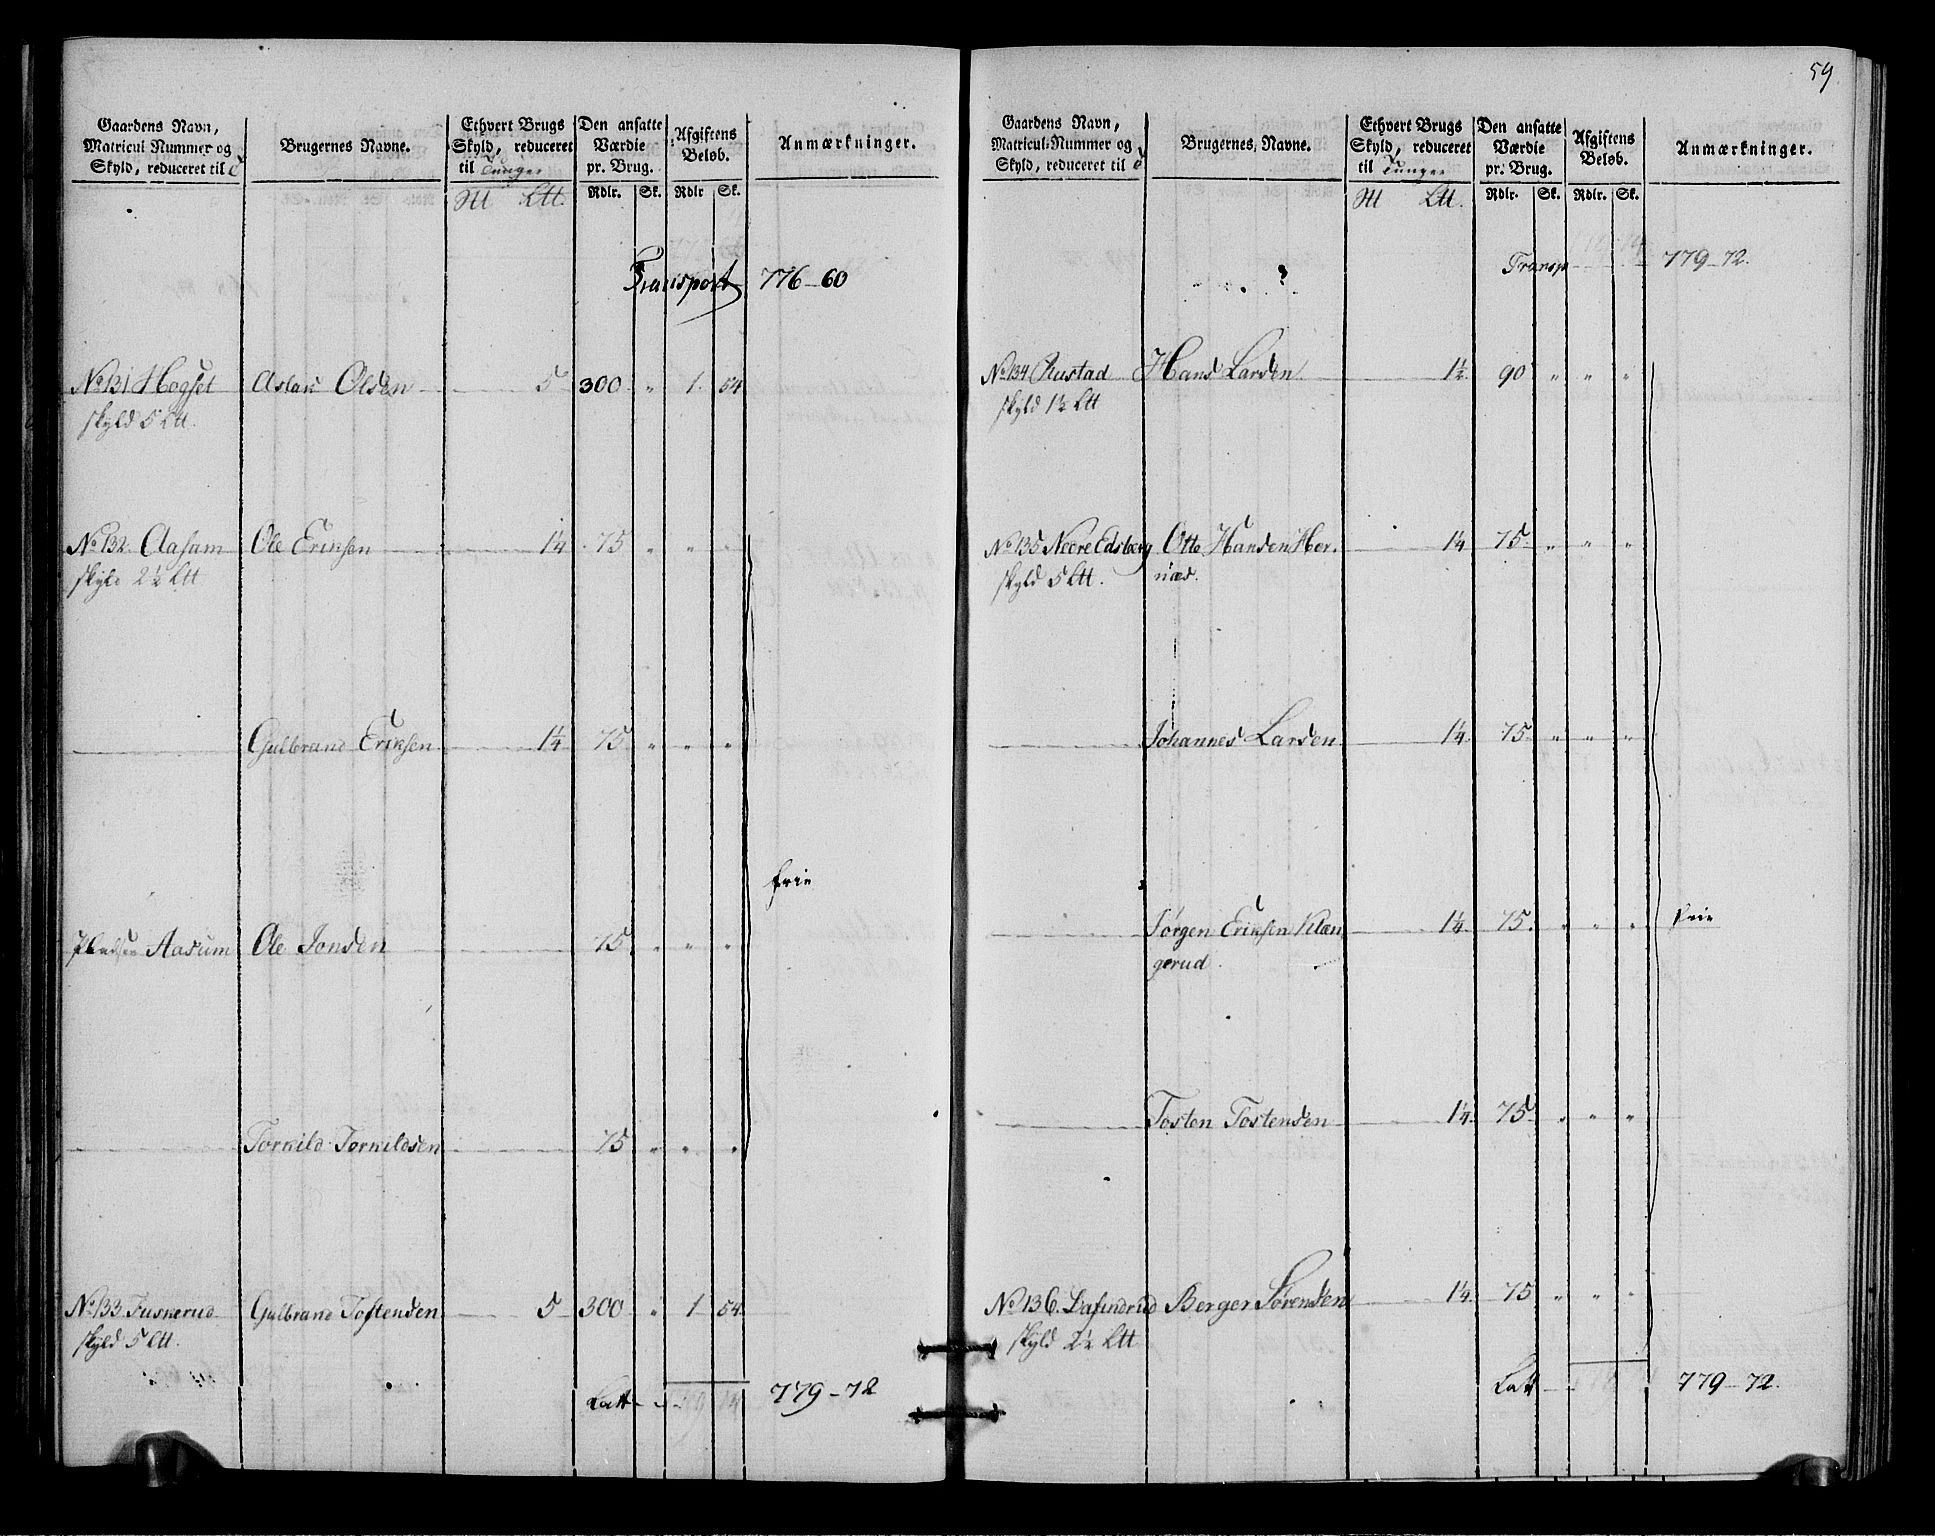 59
Gaardens Navn,
Matricul Nummer og
Skyld, reduceret til
Brugernes Navne.
Ethvert Brugs
Skyld, reduceret
til Tunge
Den ansatte
Værdie
pr. Brug.
Afgiftens
Beløb.
Anmærkninger.
Rdlr. Sk. Rdlr Sk.
Transport 776-60
No 131 Hogset Aslak Olsen 5 300 " 1. 54
skyld 5 Ltt.
No 132. Aasum Ole Eriksen 1¼ 75 " " "
skyld 2½ Ltt
Gulbrand Eriksen 1¼ 75 " " "
frie
Pladsen Aasum Ole Jonsen 75 " " "
Torkild Torkildsen 75 " " "
No 133 Fuskerud Gulbrand Tostensen 5 300 " 1 54
skyld 5 Ltt.
Latt 779-72
Gaardens Navn,
Matricul-Nummer og
Skyld, reduceret til
Brugernes Navne.
Ethvert Brugs
Skyld, reduceret
til Tunge
Den ansatte
Værdie
pr. Brug.
Afgiftens
Beløb.
Anmærkninger.
Rdlr. Sk. Rdlr. Sk.
Transp 779-72.
No 134 Rustad Hans Larsen 1½ 90 " " "
skyld 1½ Ltt
No 135 Nedre Edsberg Otte Hansen Hor-
skyld 5 Ltt. næs. 1¼ 75 " " "
Johannes Larsen 1¼ 75 " " "
Jørgen Eriksen Klan 1¼ 75 " " " frie
gerud.
Tosten Tostensen 1¼ 75 " " "
No 136. Berger Sørensen 1¼ 75 " " "
skyld 2½ Ltt
Latt 779-72.